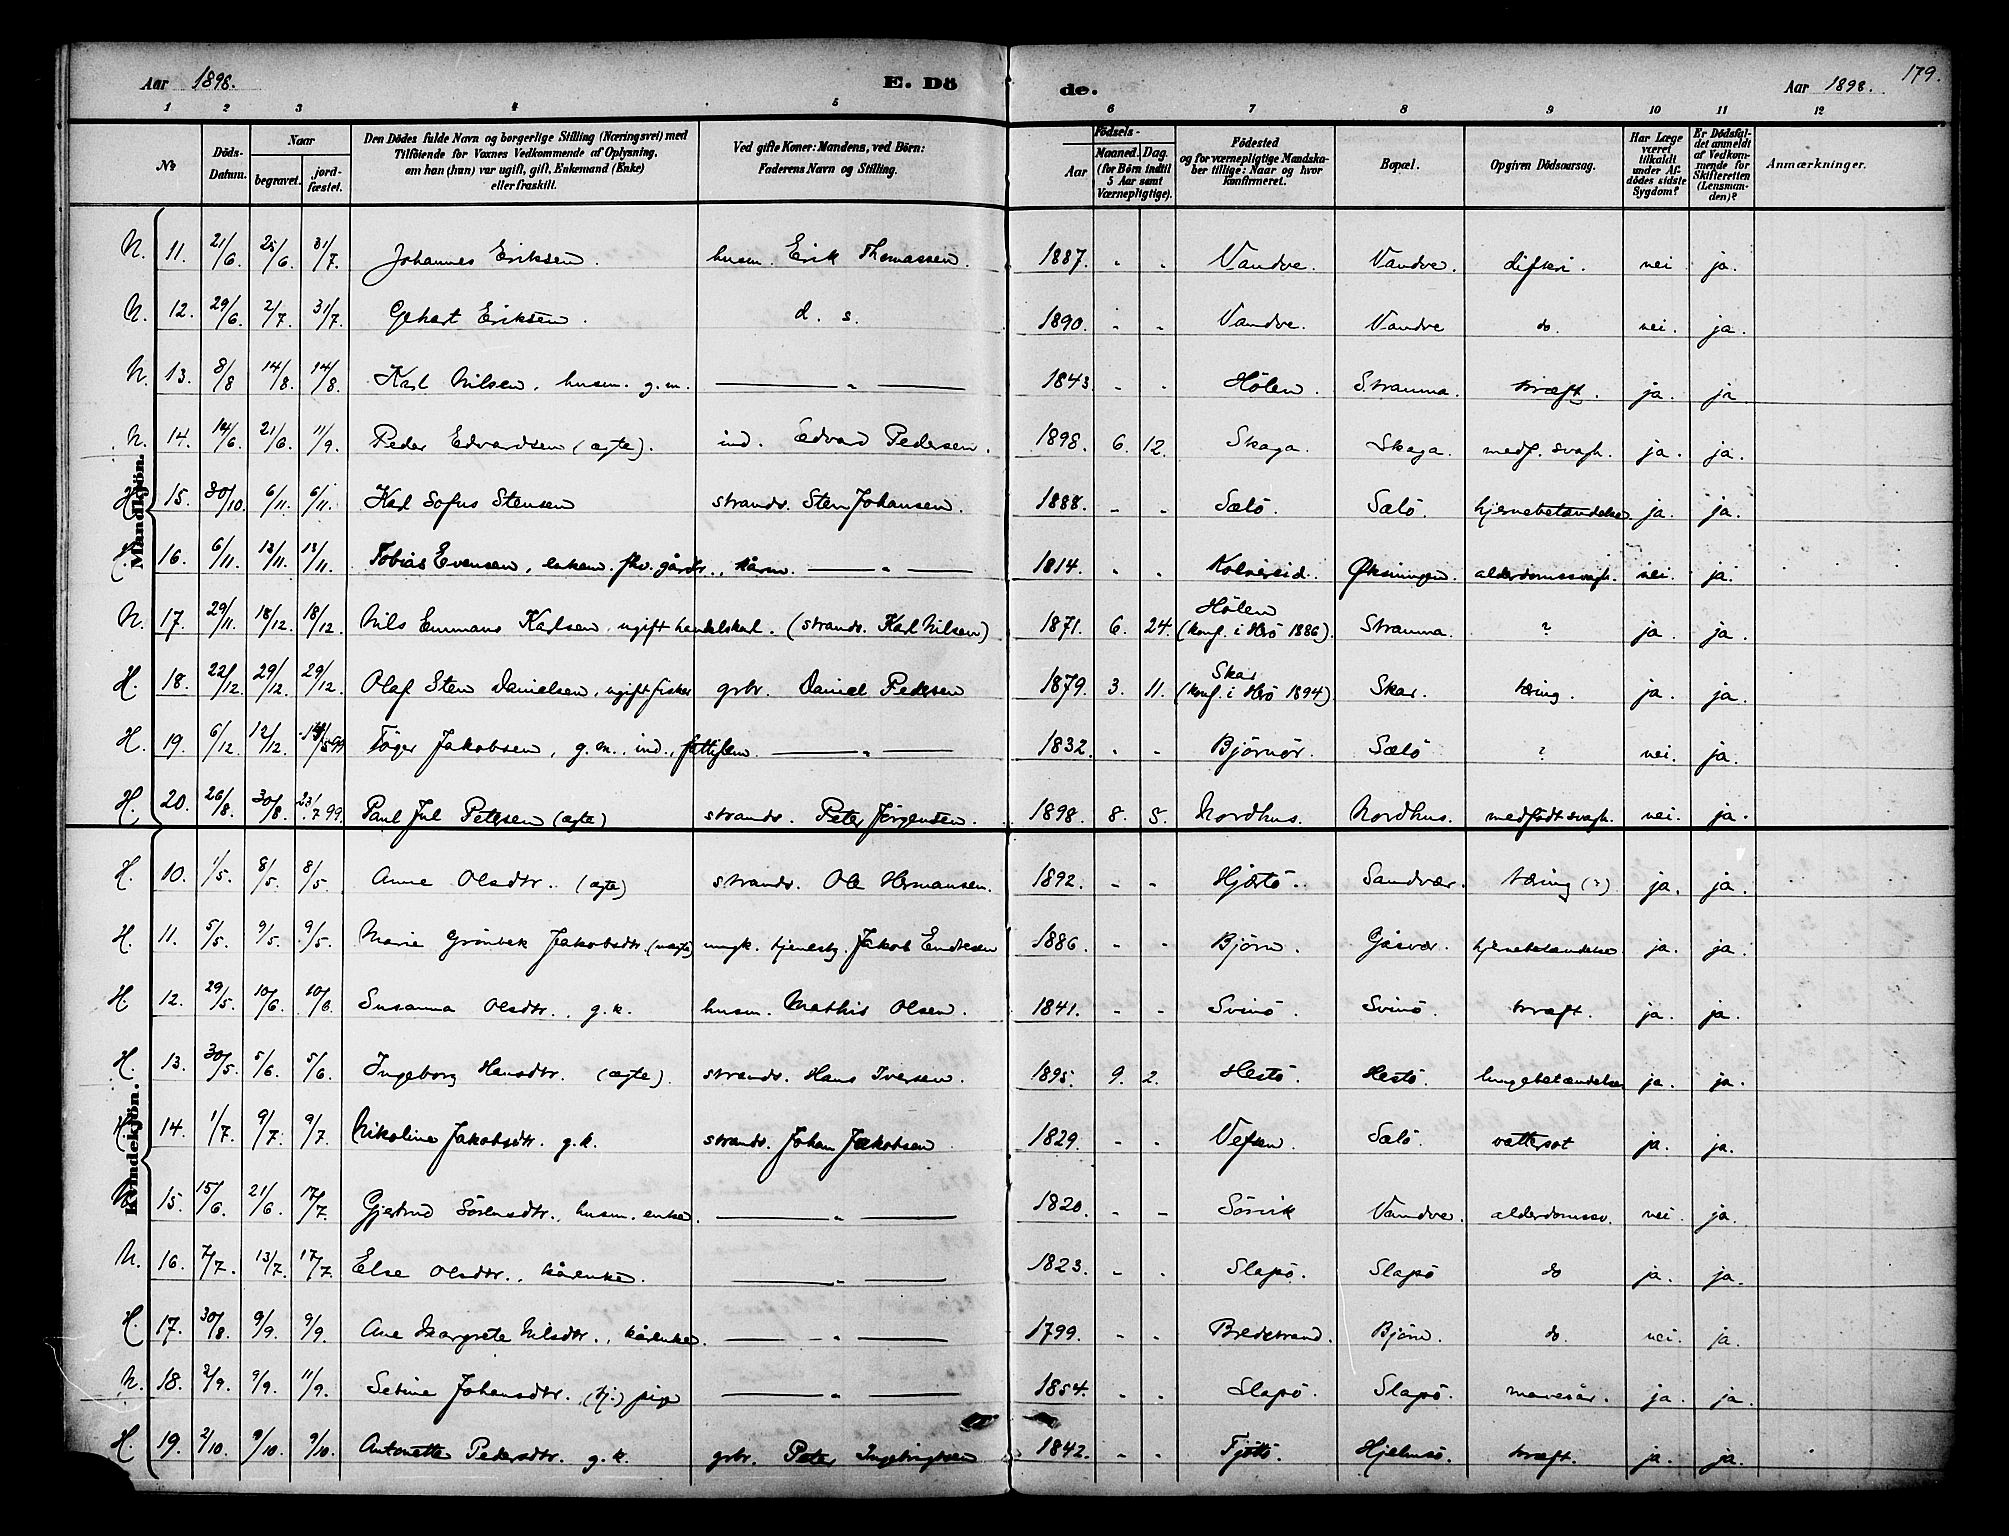 Aar 1898. E. Dö de. Aar 1898. 179.
1 2 3 4 5 6 7 8 9 10 11 12
№ Döds-Datum. Naar begravet. jordfæstet. Den Dödes fulde Navn og borgerlige Stilling (Næringsvei) med Tilföiende for Voxnes Vedkommende af Oplysning, om han (hun) var ugift, gift, Enkemand (Enke) eller fraskilt. Ved gifte Koner: Mandens, ved Börn: Faderens Navn og Stilling. Födsels- Aar Maaned. Dag. (for Börn indtil 5 Aar samt Værnepligtige). Födested og for værnepligtige Mandskaber tillige: Naar og hvor konfirmeret. Bopæl. Opgiven Dödsaarsag. Har Læge været tilkaldt under Afdödes sidste Sygdom? Er Dödsfaldet anmeldt af Vedkommende for Skifteretten (Lensmanden)? Anmærkninger.
Mandkjön.
N. 11. 21/6. 25/6. 31/7. Johannes Eriksen. husm. Erik Thomassen. 1887. - - Vandve. Vandve. difteri. nei. ja.
N. 12. 29/6. 2/7. 31/7. Gehart Eriksen. d. s. 1890. - - Vandve. Vandve do. nei. ja.
N. 13. 8/8 14/8. 14/8. Karl Nilsen, husm. g.m. — „ — 1843. - - Hölen. Stramma. kræft. ja. ja.
N. 14. 14/6. 21/6. 11/9. Peder Edvardsen (ægte). ind. Edvard Pedersen. 1898. 6. 12. Skaga. Skaga. medf. svagh. ja. ja.
H. 15. 30/10. 6/11. 6/11. Karl Sofus Stensen strands. Sten Johansen. 1888. - - Sælö. Sælö. hjernebetændelse ja. ja.
16. 6/11. 13/11. 13/11. Tobias Evensen, enkem. fhv. gårdbr., kårm. — „ — 1814. - - Kolvereid. Øksningen. alderdomssvagh. nei. ja.
N. 17. 29/11. 18/12. 18/12. Nils Emmans Karlsen, ugift handelskarl. (strands. Karl Nilsen) 1871. 6. 24. Hölen (konf. i Herö 1886). Stramma. ? ja. ja.
H. 18. 22/12. 29/12. 29/12. Olaf Sten Danielsen, ugift fisker grbr. Daniel Pedersen 1879. 3. 11. Skar (konf. i Herö 1894). Skar. tæring. ja. ja.
H. 19. 6/12. 12/12. Töger Jakobsen, g.m., ind., fattiglem. — „ — 1832. - - Björnör. Sælö ? nei. ja.
H. 20. 26/8. 30/8. 23/7 99. Paul Jul Petersen (ægte) strands. Peter Jörgensen. 1898. 8. 5. Nordhus. Nordhus. medfödt svagh. nei. ja.
Kvindekjön.
H. 10. 1/5. 8/5. 8/5. Anne Olsdtr. (ægte) strands. Ole Hermansen. 1892. - - Hjartö. Sandvær. tæring (?) ja. ja.
H. 11. 5/5. 9/5. 9/5. Marie Grönbek Jakobsdtr. (uægte) ungk. tjenestg. Jakob Endresen 1886. - - Björn. Gåsvær. hjernebetændelse ja. ja.
H. 12. 29/5. 10/6 10/6. Susanna Olsdtr., g.k. husm. Mathis Olsen. 1841. - - Svinö. Svinö. kræft. ja. ja.
H. 13. 30/5. 5/6. 5/6. Ingeborg Hansdtr. (ægte). strands. Hans Iversen. 1895. 9. 2. Hestö. Hestö. lungebetændelse ja. ja.
H. 14. 1/7. 9/7. 9/7. Nikoline Jakobsdtr. g.k. strands. Johan Jakobsen 1829. - - Vefsen. Sælö. vattersot ja. ja.
N. 15. 15/6. 21/6. 17/7. Gjertrud Sörensdtr., husm. enke. — „ — 1820. - - Sörvik Vandve. alderdomssv. nei. ja.
N. 16. 7/7. 13/7. 17/7. Else Olsdtr., kårenke. — „ — 1823. - - Slapö. Slapö do ja. ja.
H. 17. 30/8. 9/9. 9/9. Ane Margrete Nilsdtr., kårenke. — „ — 1799. - - Bredstrand. Björn. do. nei. ja
N. 18. 2/9. 9/9. 11/9. Sebine Johansdtr. (tj.) pige — „ — 1854. - - Slapö. Slapö. mavesår. ja. ja.
H. 19. 2/10. 9/10. 9/10. Antonette Pedersdtr. g.k. grbr. Peter Ingebrigtsen 1842. - - Tjöttö. Hjelmsö. kræft. ja. ja.